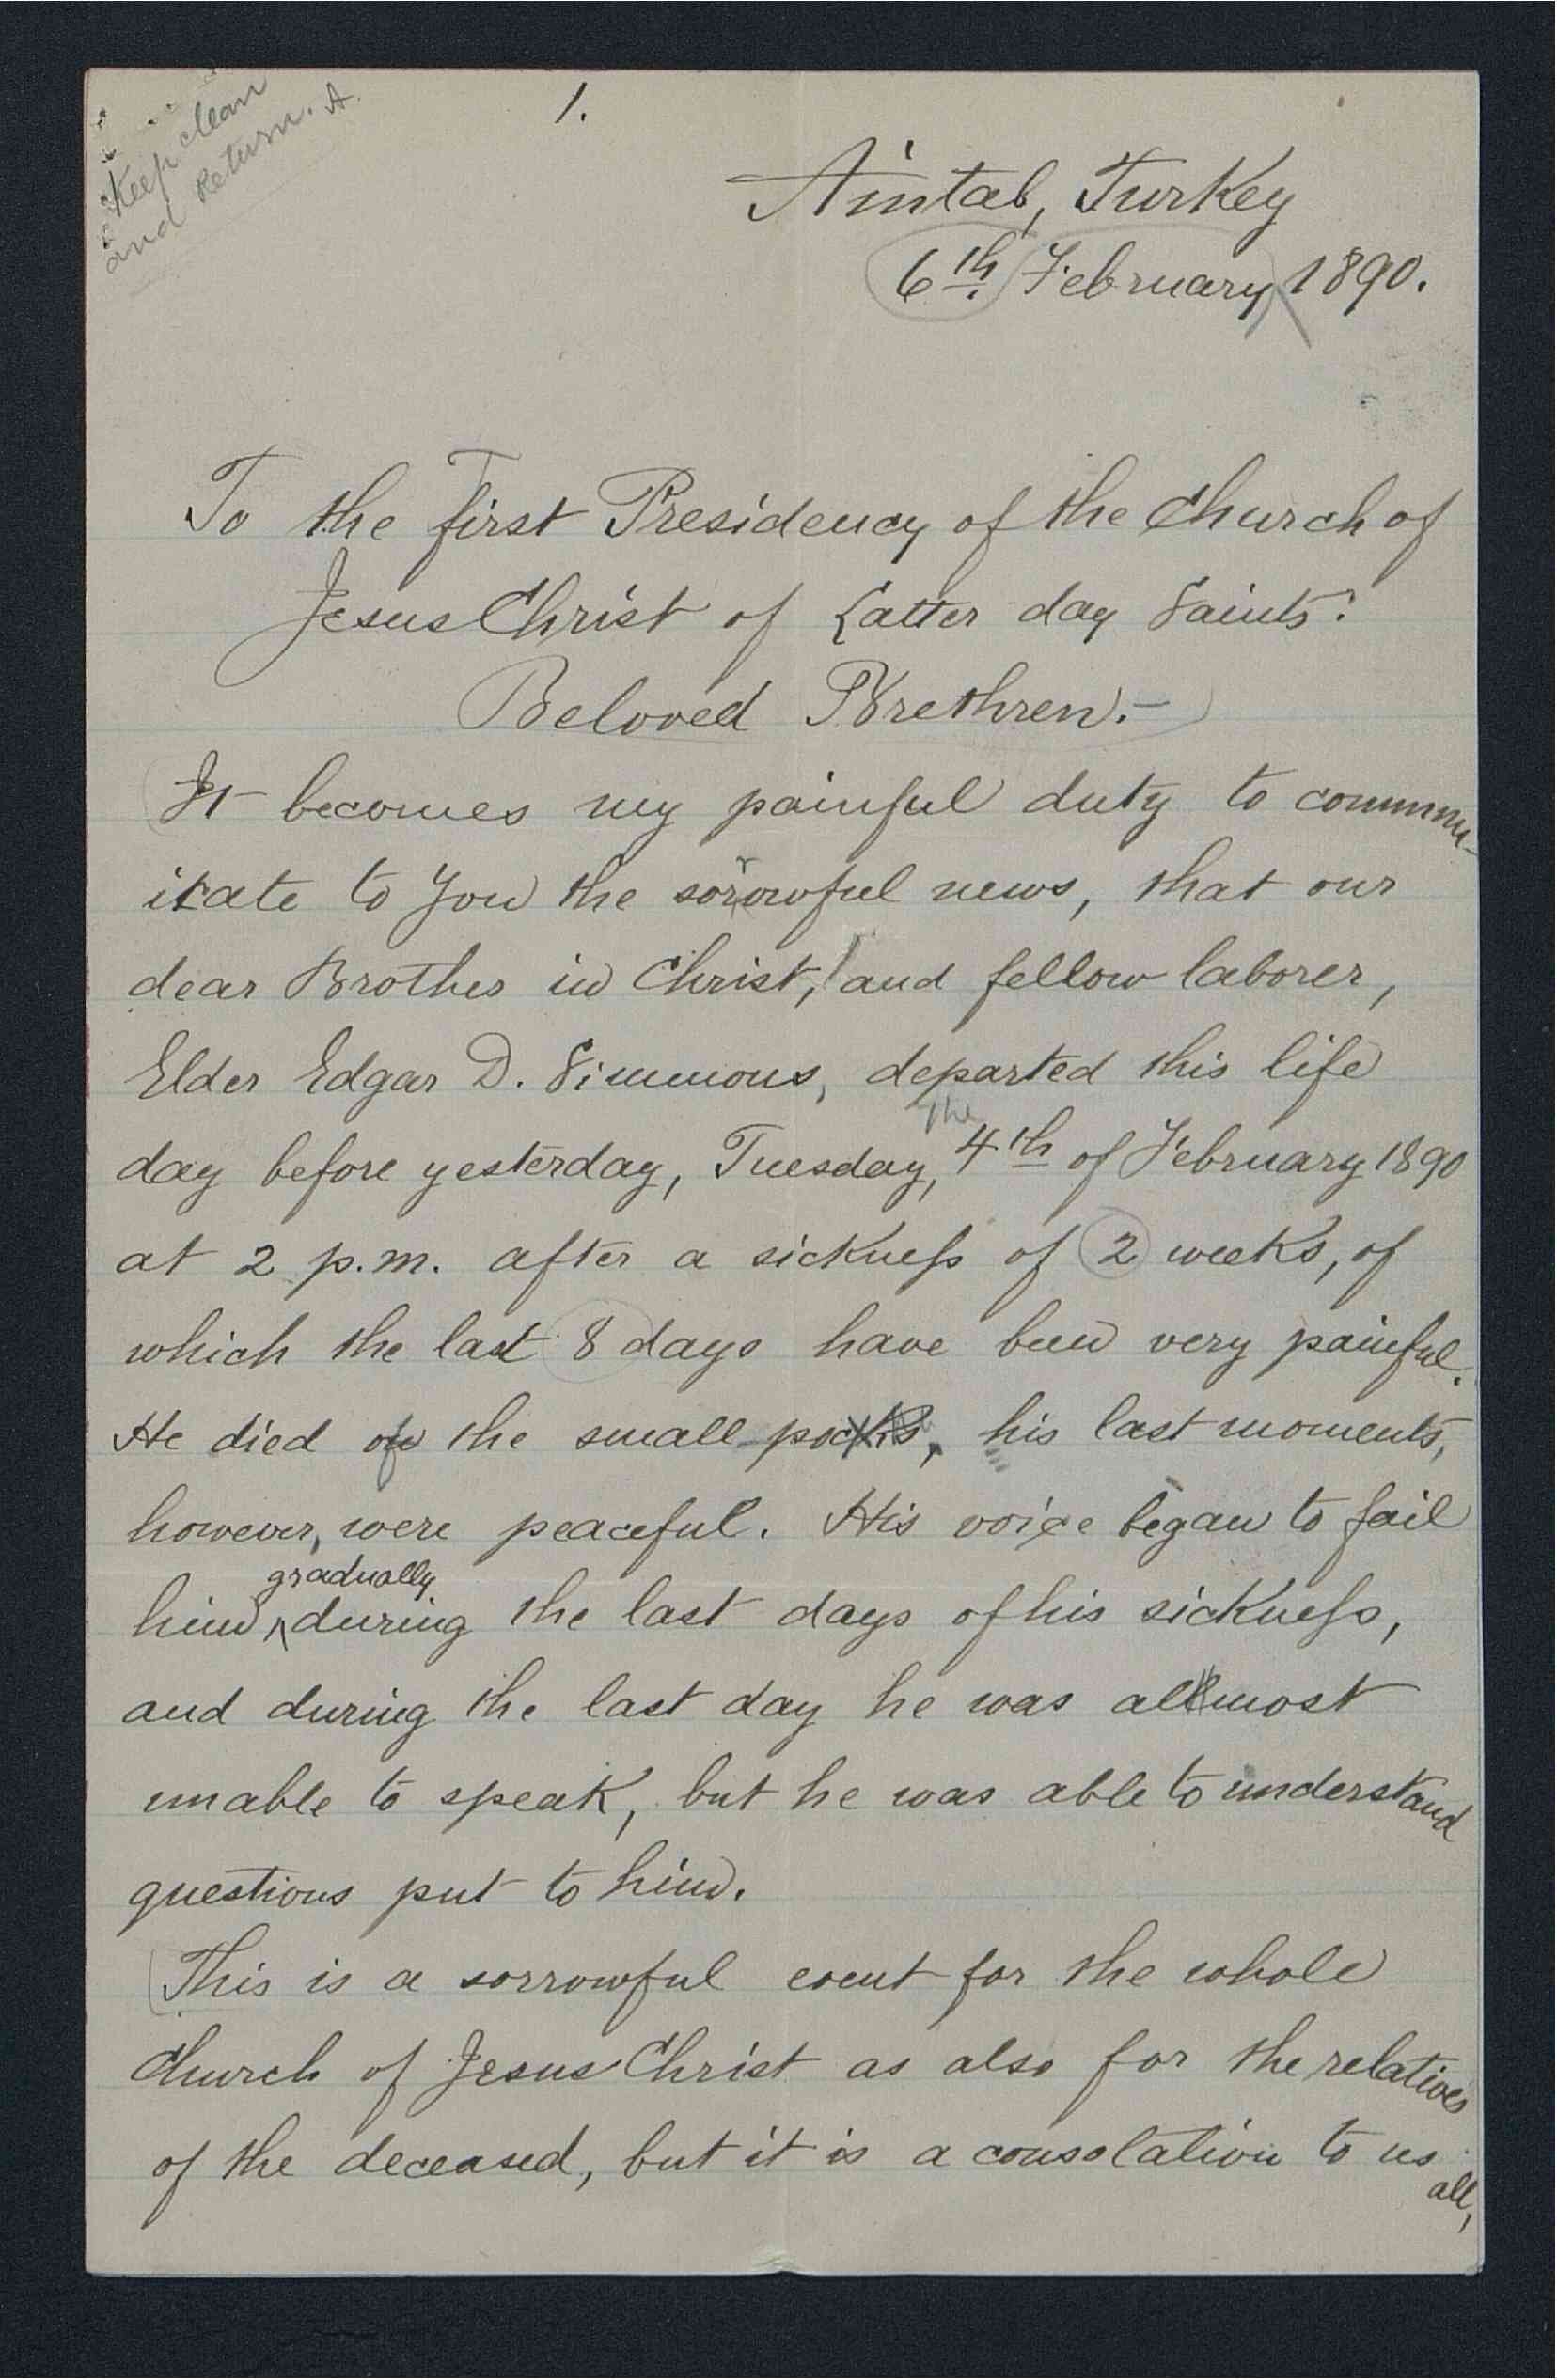 Keep clean
and Return. A.
1.
Aintab, Turkey
6th February, 1890.
To the First Presidency of the Church of
Jesus Christ of Latter day Saints:
Beloved Brethren:—
It becomes my painful duty to commun-
icate to You the sorrowful news, that our
dear Brother in Christ, and fellow laborer,
Elder Edgar D. Simmons, departed this life
day before yesterday, Tuesday, the 4th of February 1890
at 2 p.m. after a sickness of 2 weeks, of
which the last 8 days have been very painful.
He died of the small pox, his last moments,
however, were peaceful. His voice began to fail
him gradually during the last days of his sickness,
and during the last day he was almost
unable to speak, but he was able to understand
questions put to him.
This is a sorrowful event for the whole
Church of Jesus Christ as also for the relatives
of the deceased, but it is a consolation to us
all,